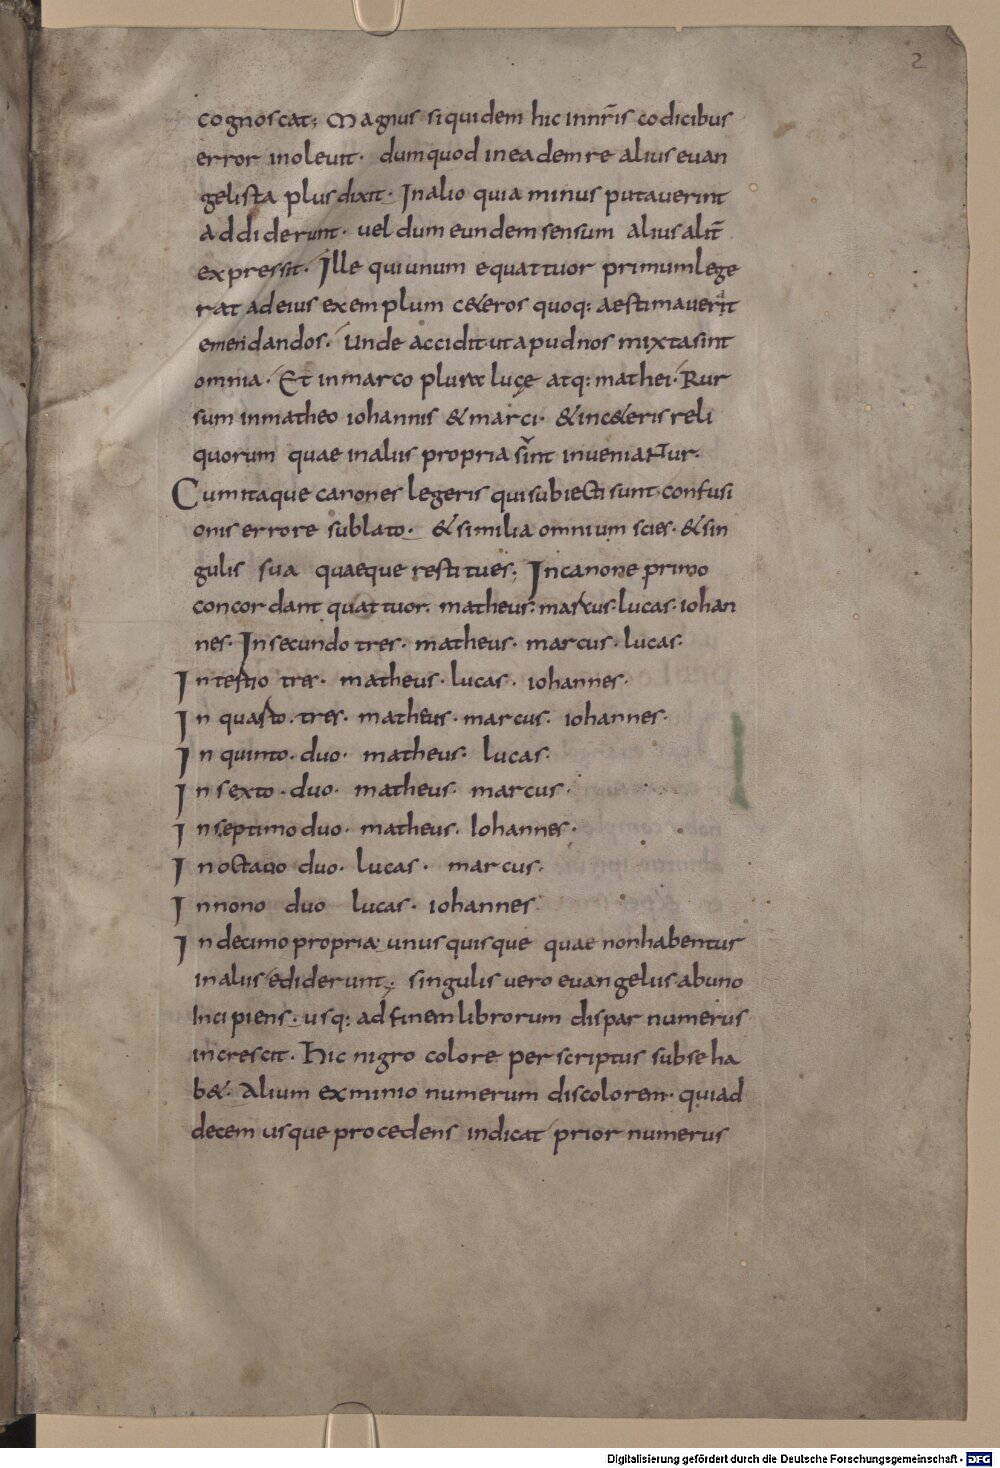 2
cognoscat; Magnus siquidem hic innr̄is codicibus
error inolevit· dumquod ineademre alius evan
gelista plus dixit· Inalio quia minus putaverint
addiderunt· vel dum eundem sensum alius alit̄
expressit· Ille qui unum equattuor primum lege
rat adeius exemplum ceteros quoq: aestimaverit
emendandos· Unde accidit ut apud nos mixta sint
omnia· Et inmarco plura lucę atq: mathei· Rur
sum inmatheo iohannis & marci· & inc&eris reli
quorum quae inaliis propria sint inveniantur·
Cum itaque canones legeris qui subiecti sunt· confusi
onis errore sublato· & similia omnium scies· & sin
gulis sua quaeque restitues; In canone primo
concordant quattuor· matheus· marcus· lucas· iohan
nes· In secundo tres· matheus· marcus· lucas·
In tertio tres· matheus· lucas· iohannes·
In quarto· tres· matheus· marcus· iohannes·
In quinto· duo· matheus· lucas·
In sexto· duo· matheus· marcus·
In septimo duo· matheus· Iohannes·
In octavo duo· lucas· marcus·
In nono duo lucas· iohannes
In decimo propriae unusquisque quae non habentur
in aliis ediderunt· singulis vero evangeliis· ab uno
Incipiens· usq: ad finem librorum dispar numerus
increscit· Hic nigro colore perscriptus sub se ha
b&· Alium ex minio numerum discolorem· qui ad
decem usque procedens indicat prior numerus
Digitalisierung gefördert durch die Deutsche Forschungsgemeinschaft - DFG